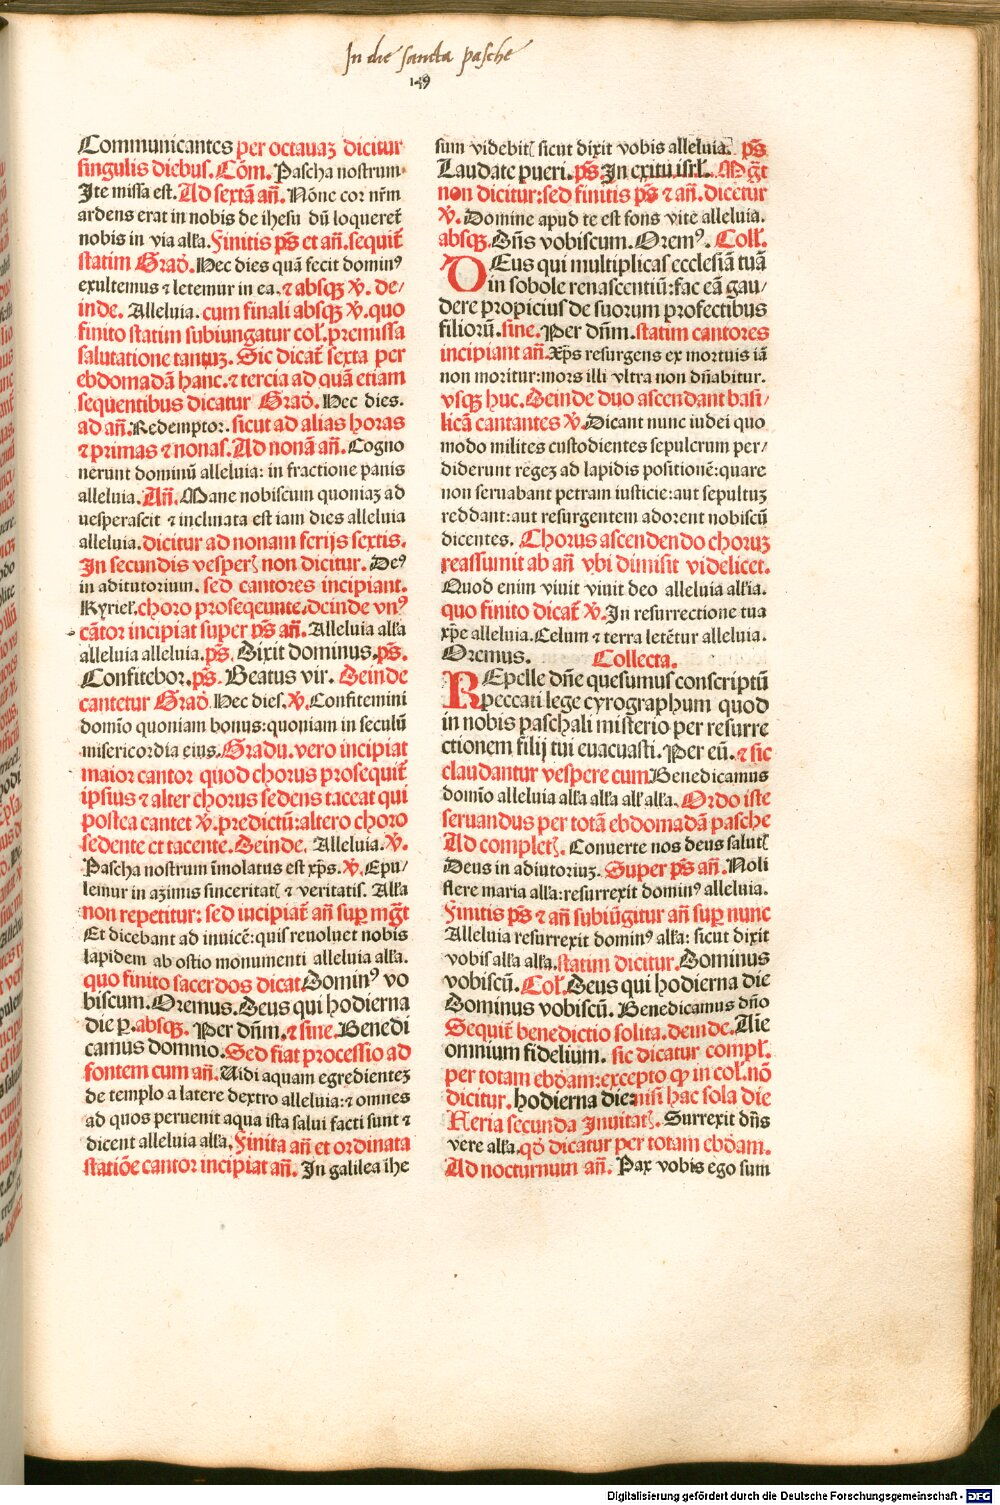 In die sancta pasche
149
Communicantes per octauaʒ dicitur
singulis diebus. Cõm. Pascha nostrum
Ite missa est. Ad sextã añ. Nõne cor nr̃m
ardens erat in nobis de ihesu dũ loqueret᷑
nobis in via alľa. Finitis pš et añ. sequit᷑
statim Grad̃. Hec dies quã fecit dominꝰ
exultemus ⁊ letemur in ea. ⁊ absqʒ ꝟ. de/
inde. Alleluia. cum finali absqʒ ꝟ. quo
finito statim subiungatur coł. premissa
salutatione tantuʒ. Sic dicat᷑ sexta per
ebdomadã hanc. ⁊ tercia ad quã etiam
sequentibus dicatur Grad̃. Hec dies.
ad añ. Redemptor. sicut ad alias horas
⁊ primas ⁊ nonas. Ad nonã añ. Cogno
nerunt dominũ alleluia: in fractione panis
alleluia. Añ. Mane nobiscum quoniaʒ ad
uesperascit ⁊ inclinata est iam dies alleluia
alleluia. dicitur ad nonam ferijs sextis.
In secundis vesperꝭ non dicitur. Deꝰ
in adiutorium. sed cantores incipiant.
Kyrieł. choro prosequente. deinde vnꝰ
cãtor incipiat super pš añ. Alleluia alľa
alleluia alleluia. pš. Dixit dominus. pš.
Confitebor. pš. Beatus vir. Deinde
cantetur Grad̃. Hec dies. ꝟ. Confitemini
domĩo quoniam bonus: quoniam in seculũ
misericordia eius. Gradu. vero incipiat
maior cantor quod chorus prosequit᷑
ipsius ⁊ alter chorus sedens taceat qui
postea cantet ꝟ. predictũ: altero choro
sedente et tacente. Deinde. Alleluia. ꝟ.
Pascha nostrum ĩmolatus est xp̃s. ꝟ. Epu/
lemur in aʒimis sinceritatꝭ ⁊ veritatis. Alľa
non repetitur: sed incipiat᷑ añ suꝑ mg̃t
Et dicebant ad inuicẽ: quis reuoluet nobis
lapidem ab ostio monumenti alleluia alľa.
quo finito sacerdos dicat Dominꝰ vo
biscum. Oremus. Deus qui hodierna
die ꝑ. absqʒ. Per dñm. ⁊ sine. Benedi
camus domnio. Sed fiat processio ad
fontem cum añ. Uidi aquam egredienteʒ
de templo a latere dextro alleluia: ⁊ omnes
ad quos peruenit aqua ista salui facti sunt ⁊
dicent alleluia alľa. Finita añ et ordinata
statiõe cantor incipiat añ. In galilea ih̃e
sum videbitꝭ sicut dixit vobis alleluia. pš
Laudate pueri. pš. In exitu isrł. Mg̃t
non dicitur: sed finitis pš ⁊ añ. dicetur
ꝟ. Domine apud te est fons vite alleluia.
absqʒ. Dñs vobiscum. Oremꝰ. Coll.
DEus qui multiplicas ecclesiã tuã
in sobole renascentiũ: fac eã gau/
dere propicius de suorum profectibus
filiorũ. sine. Per dñm. statim cantores
incipiant añ. Xp̃s resurgens ex mortuis iã
non moritur: mors illi vltra non dñabitur.
vsqʒ huc. Deinde duo ascendant basi/
licã cantantes ꝟ. Dicant nunc iudei quo
modo milites custodientes sepulcrum per/
diderunt regeʒ ad lapidis positionẽ: quare
non seruabant petram iusticie: aut sepultuʒ
reddant: aut resurgentem adorent nobiscũ
dicentes. Chorus ascendendo choruʒ
reassumit ab añ vbi dimisit videlicet.
Quod enim viuit viuit deo alleluia alľia.
quo finito dicat᷑ ꝟ. In resurrectione tua
xp̃e alleluia. Celum ⁊ terra letẽtur alleluia.
Oremus. Collecta.
REpelle dñe quesumus conscriptũ
peccati lege cyrographum quod
in nobis paschali misterio per resurre
ctionem filij tui euacuasti. Per eũ. ⁊ sic
claudantur vespere cum Benedicamus
domĩo alleluia alľa alľa alľ alľa. Ordo iste
seruandus per totã ebdomadã pasche
Ad completꝭ. Conuerte nos deus salutꝭ
Deus in adiutoriuʒ. Super pš añ. Noli
flere maria alľa: resurrexit dominꝰ alleluia.
Finitis pš ⁊ añ subiũgitur añ suꝑ nunc
Alleluia resurrexit dominꝰ alľa: sicut dixit
vobis alľa alľa. statim dicitur. Dominus
vobiscũ. Coł. Deus qui hodierna die
Dominus vobiscũ. Benedicamus dño
Sequit᷑ benedictio solita. deinde. Aĩe
omnium fidelium. sic dicatur compł.
per totam ebdam: excepto ꝙ in coł. nõ
dicitur. hodierna die: nisi hac sola die
Feria secunda Inuitatꝭ. Surrexit dñs
vere alľa. qð dicatur per totam ebdam.
Ad nocturnum añ. Pax vobis ego sum
Digitalisierung gefördert durch die Deutsche Forschungsgemeinschaft - DFG